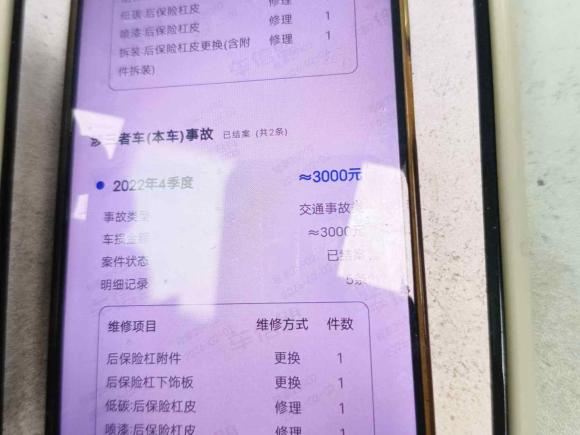 低碳:后保险杠皮 修理
喷漆:后保险杠皮 修理 1
拆装:后保险杠皮更换(含附 修理 1
件拆装)
三者车(本车)事故 已结案 (共2条)
2022年4季度 ≈3000元
事故类型 交通事故
车损金额 ≈3000元
案件状态 已结案
明细记录 5条
维修项目 维修方式 件数
后保险杠附件 更换 1
后保险杠下饰板 更换 1
低碳:后保险杠皮 修理 1
喷漆:后保险杠皮 修理 1